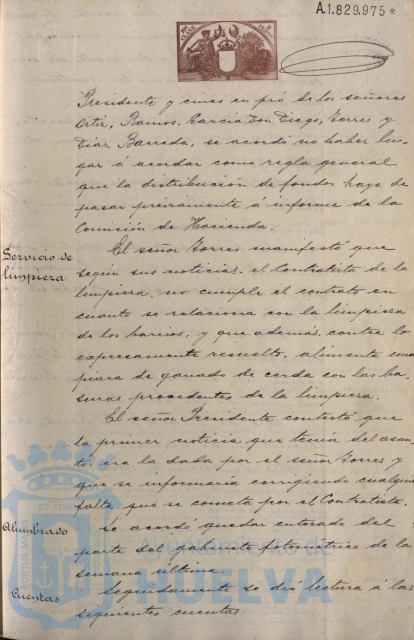 A.1.829.975*
Presidente y cinco en pró de los señores
Ortiz, Ramos, García Don Diego, Torres y
Diaz Barreda, se acordó no haber lu-
gar á acordar como regla general
que la distribución de fondos haya de
pasar préviamente á informe de la
Comisión de Hacienda.
Servicio de
limpieza
El señor Torres manifestó que
segun sus noticias, el Contratista de la
limpieza, no cumple el contrato en
cuanto se relaciona con la limpieza
de los barrios, y que además, contra lo
expresamente resuelto, alimenta una
piara de ganado de cerda con las ba-
suras procedentes de la limpieza.
El señor Presidente contestó que
la primer noticia que tenia del asun-
to, era la dada por el señor Torres y
que se informaria corrigiendo cualquier
falta que se cometa por el Contratista.
Alumbrado
Se acordó quedar enterado del
parte del gabinete fotométrico de la
semana última.
Cuentas
Seguidamente se dió lectura á las
siguientes cuentas:
Ayuntamiento de
HUELVA